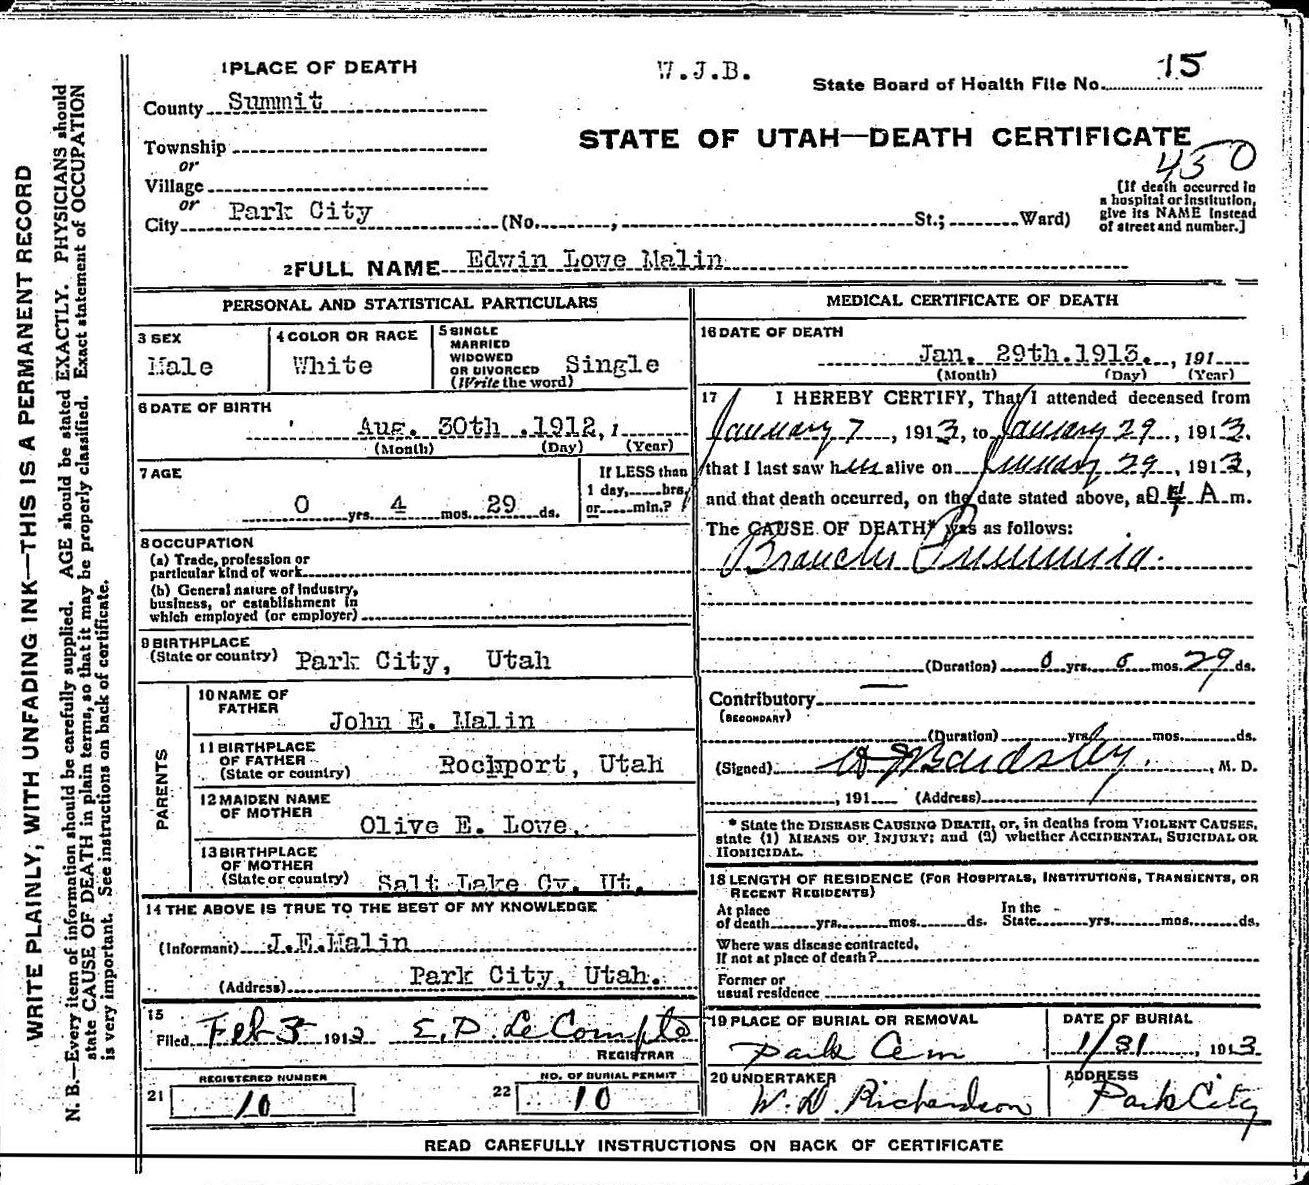 WRITE PLAINLY, WITH UNFADING INK—THIS IS A PERMANENT RECORD
N. B.—Every item of information should be carefully supplied. AGE should be stated EXACTLY. PHYSICIANS should
state CAUSE OF DEATH in plain terms, so that it may be properly classified. Exact statement of OCCUPATION
is very important. See instructions on back of certificate.
1 PLACE OF DEATH
County Summit
Township
or
Village
or
City Park City (No. , St.; Ward)
W.J.B.
State Board of Health File No. 15
STATE OF UTAH—DEATH CERTIFICATE
450
[If death occurred in
a hospital or institution,
give its NAME instead
of street and number.]
2 FULL NAME Edwin Lowe Malin
PERSONAL AND STATISTICAL PARTICULARS
3 SEX
Male
4 COLOR OR RACE
White
5 SINGLE
MARRIED
WIDOWED
OR DIVORCED
(Write the word)
Single
6 DATE OF BIRTH
Aug. 30th .1912,
(Month) (Day) (Year)
7 AGE
0 yrs. 4 mos. 29 ds.
If LESS than
1 day, hrs.
or min.?
8 OCCUPATION
(a) Trade, profession or
particular kind of work
(b) General nature of industry,
business, or establishment in
which employed (or employer)
9 BIRTHPLACE
(State or country) Park City, Utah
PARENTS
10 NAME OF
FATHER
John E. Malin
11 BIRTHPLACE
OF FATHER
(State or country)
Rockport, Utah
12 MAIDEN NAME
OF MOTHER
Olive E. Lowe,
13 BIRTHPLACE
OF MOTHER
(State or country) Salt Lake Cy. Ut.
14 THE ABOVE IS TRUE TO THE BEST OF MY KNOWLEDGE
(Informant) J.E.Malin
(Address) Park City, Utah.
15
Filed Feb 3 1913 E. P. Le Compte
REGISTRAR
21 REGISTERED NUMBER
10
22 NO. OF BURIAL PERMIT
10
MEDICAL CERTIFICATE OF DEATH
16 DATE OF DEATH
Jan. 29th.1913. , 191
(Month) (Day) (Year)
17 I HEREBY CERTIFY, That I attended deceased from
January 7 , 1913, to January 29 , 1913,
that I last saw him alive on January 29 , 1913,
and that death occurred, on the date stated above, at A m.
The CAUSE OF DEATH* was as follows:
Broncho Pneumonia.
(Duration) 0 yrs. 0 mos. 29 ds.
Contributory —
(SECONDARY)
(Duration) yrs. mos. ds.
(Signed) W J Bardsley , M. D.
, 191 (Address)
* State the DISEASE CAUSING DEATH, or, in deaths from VIOLENT CAUSES,
state (1) MEANS OF INJURY; and (2) whether ACCIDENTAL, SUICIDAL OR
HOMICIDAL.
18 LENGTH OF RESIDENCE (FOR HOSPITALS, INSTITUTIONS, TRANSIENTS, OR
RECENT RESIDENTS)
At place
of death yrs. mos. ds.
In the
State yrs. mos. ds.
Where was disease contracted,
If not at place of death?
Former or
usual residence
19 PLACE OF BURIAL OR REMOVAL
Park Cem
DATE OF BURIAL
1/31 , 1913
20 UNDERTAKER
W. D. Richardson
ADDRESS
Park City
READ CAREFULLY INSTRUCTIONS ON BACK OF CERTIFICATE